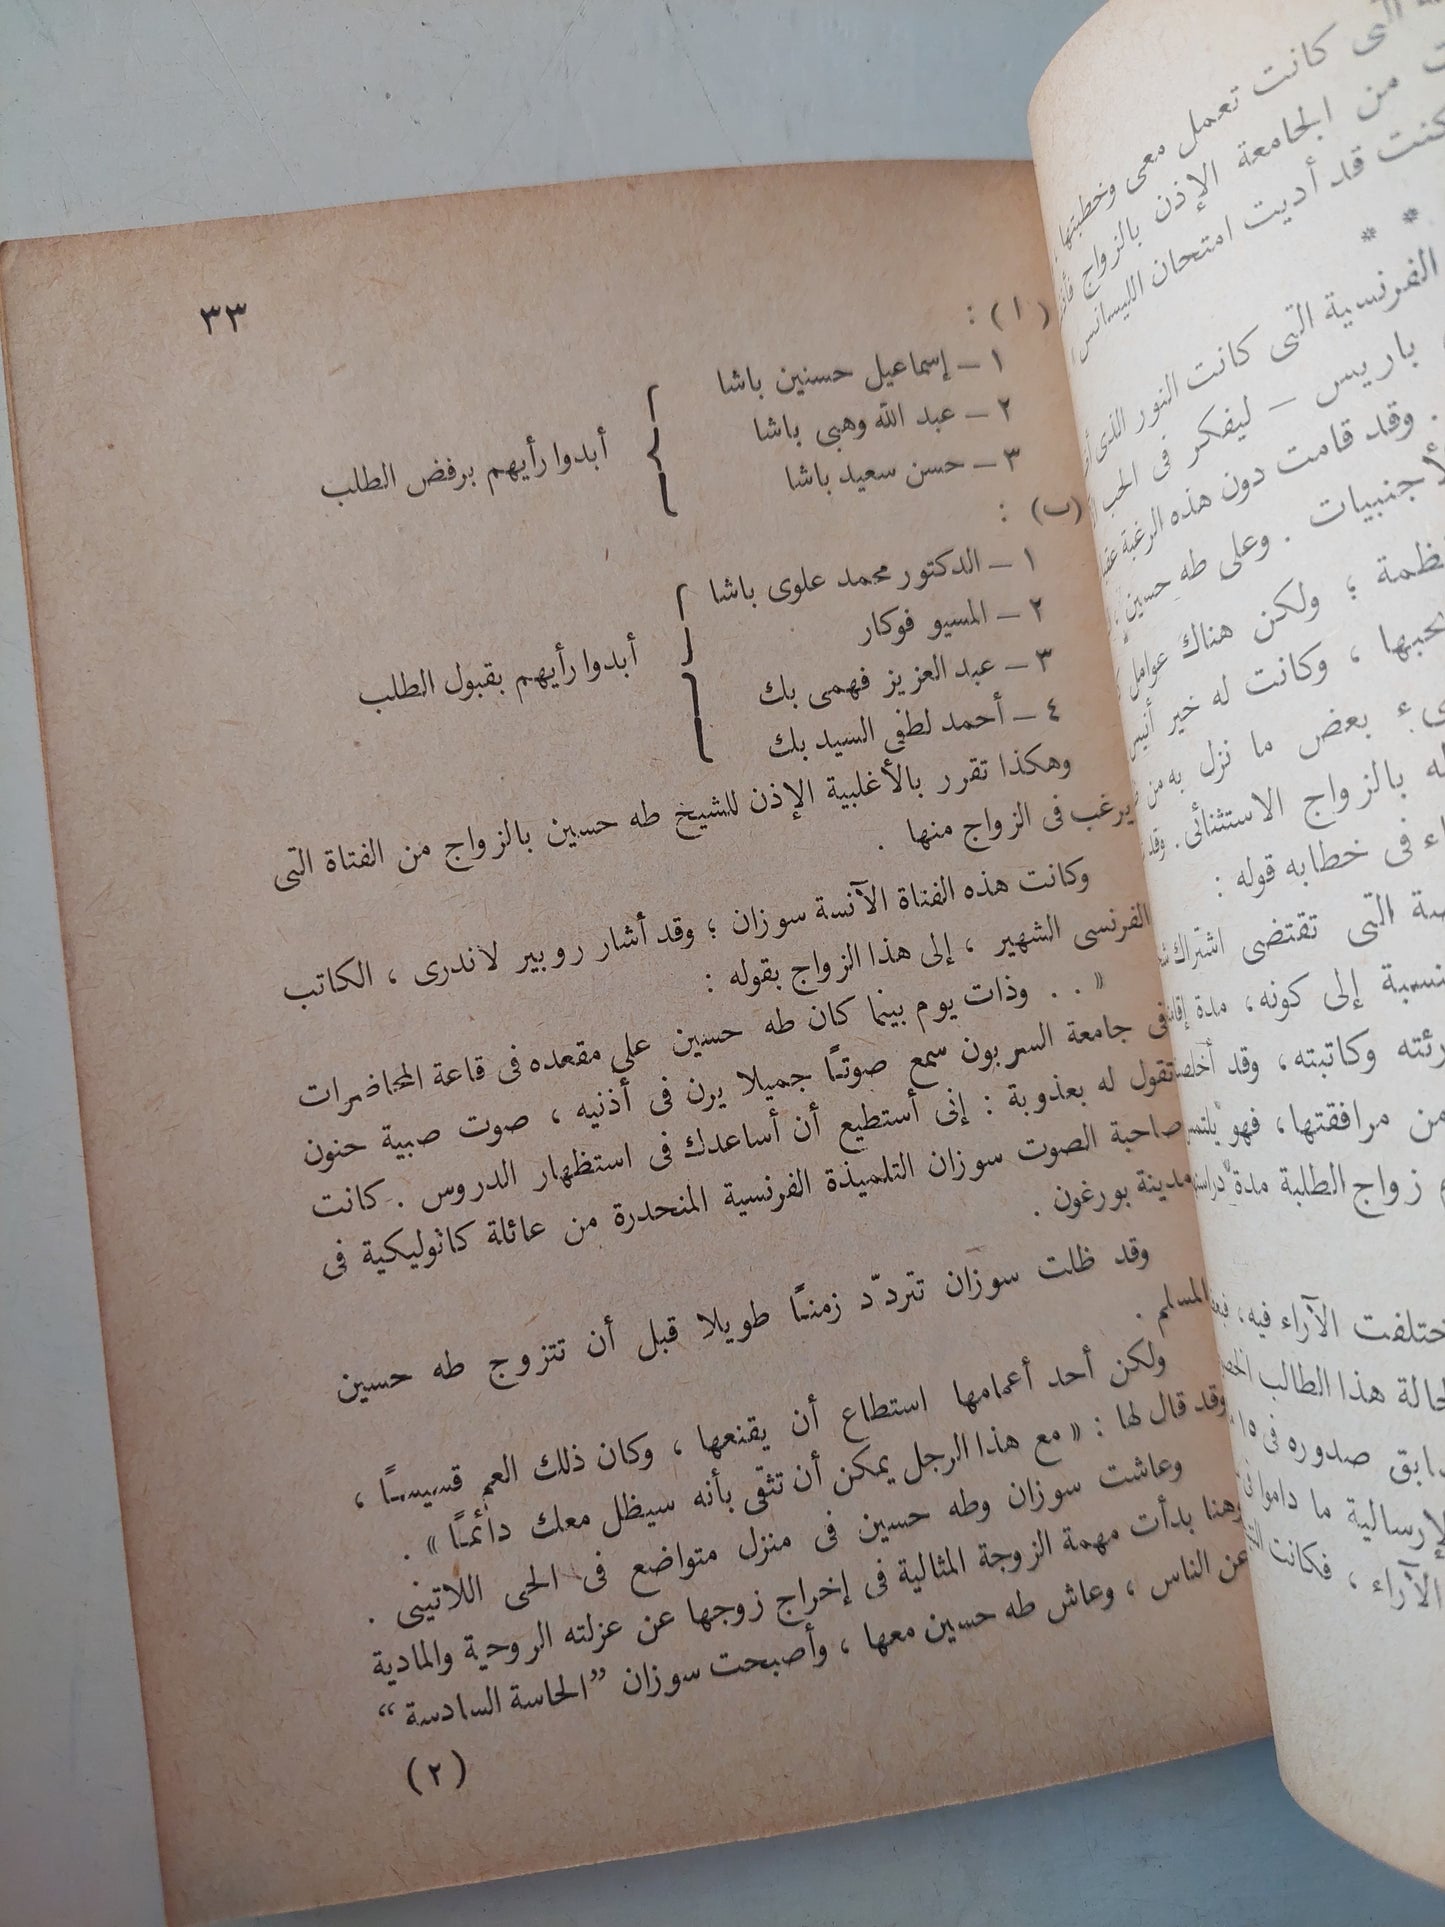 التى كانت تعمل معى وخطبتها
من الجامعة الإذن بالزواج
كنت قد أديت امتحان الليسانس
* *
الفرنسية التى كانت النور الذى
باريس – ليفكر فى الحب
. وقد قامت دون هذه الرغبة
الأجنبيات . وعلى طه حسين
؛ ولكن هناك عوامل
، وكانت له خير أنيس
بعض ما نزل به من
بالزواج الاستثنائى . وقد
فى خطابه قوله :
التى تقتضى اشتراك
إلى كونه، مدة
وكاتبته، وقد
من مرافقتها، فهو يلتمس
زواج الطلبة مدة
الآراء فيه،
هذا الطالب
صدوره فى ١٥
ما داموا
الآراء ، فكانت
٣٣
( ا ) :
١ – إسماعيل حسنين باشا
٢ – عبد الله وهبى باشا
أبدوا رأيهم برفض الطلب
٣ – حسن سعيد باشا
(ب) :
١ – الدكتور محمد علوى باشا
٢ – المسيو فوكار
أبدوا رأيهم بقبول الطلب
٣ – عبد العزيز فهمى بك
٤ – أحمد لطفى السيد بك
وهكذا تقرر بالأغلبية الإذن للشيخ طه حسين بالزواج من الفتاة التى
يرغب فى الزواج منها .
وكانت هذه الفتاة الآنسة سوزان ؛ وقد أشار روبير لاندرى ، الكاتب
الفرنسى الشهير ، إلى هذا الزواج بقوله :
« . . وذات يوم بينما كان طه حسين على مقعده فى قاعة المحاضرات
فى جامعة السربون سمع صوتًا جميلا يرن فى أذنيه ، صوت صبية حنون
تقول له بعذوبة : إنى أستطيع أن أساعدك فى استظهار الدروس . كانت
صاحبة الصوت سوزان التلميذة الفرنسية المنحدرة من عائلة كاثوليكية فى
مدينة بورغون .
وقد ظلت سوزان تتردّد زمنًا طويلا قبل أن تتزوج طه حسين
المسلم .
ولكن أحد أعمامها استطاع أن يقنعها ، وكان ذلك العم قسيسًا ،
وقد قال لها : « مع هذا الرجل يمكن أن تثقى بأنه سيظل معك دائمًا » .
وعاشت سوزان وطه حسين فى منزل متواضع فى الحى اللاتينى .
وهنا بدأت مهمة الزوجة المثالية فى إخراج زوجها عن عزلته الروحية والمادية
عن الناس ، وعاش طه حسين معها ، وأصبحت سوزان ”الحاسة السادسة“
(٢)